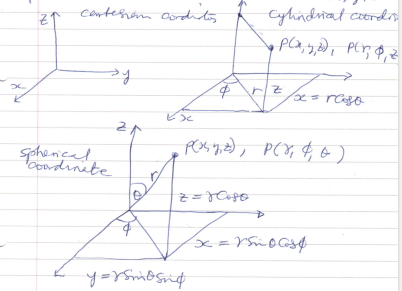 z cartesian cordints
y
x
cylindrical coordi
P(x,y,z), P(r, ϕ, z
ϕ r z x = r cosθ
x
spherical coordinate
z
P(x,y,z), P(r, ϕ, θ)
r
θ z = r cosθ
ϕ
x = r sinθ cosϕ
y = r sinθ sinϕ